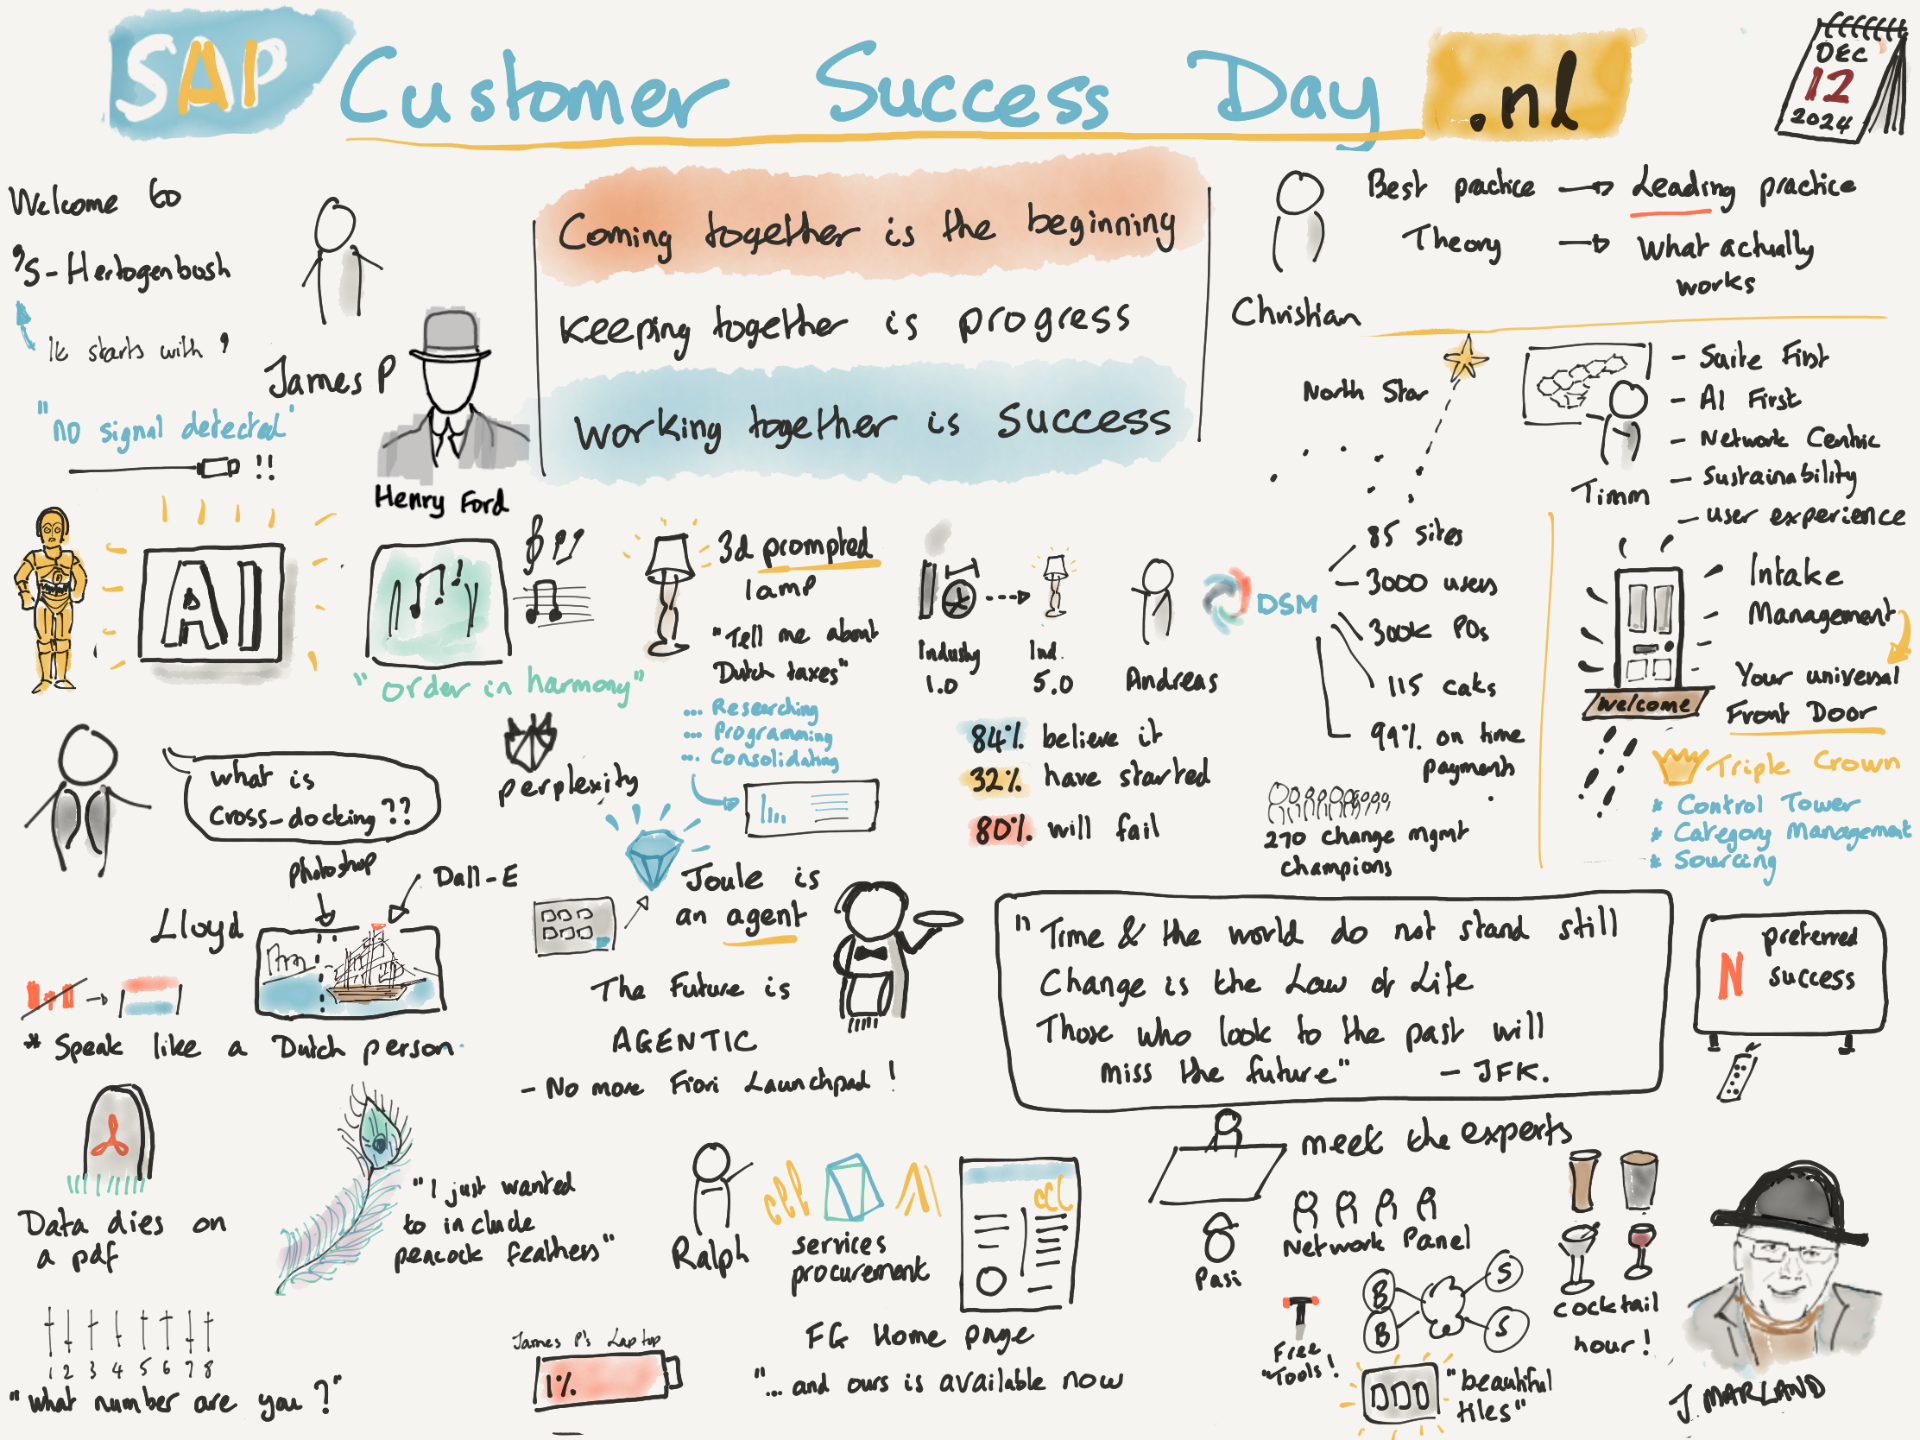 SAP Customer Success Day .nl
DEC
12
2024
Welcome to
's-Hertogenbosh
It starts with '
"no signal detected"
!!
James P
Henry Ford
Coming together is the beginning
Keeping together is progress
Working together is success
Christian
Best practice → Leading practice
Theory → What actually
works
North Star
Timm
- Suite First
- AI First
- Network Centric
- Sustainability
- User experience
AI
"order in harmony"
3d prompted
lamp
"Tell me about
Dutch taxes"
... Researching
... Programming
... Consolidating
perplexity
Industry
1.0
Ind.
5.0
Andreas
84% believe it
32% have started
80% will fail
DSM
85 sites
3000 users
300k POs
115 cats
99% on time
payments
270 change mgmt
champions
Intake
Management
Your universal
Front Door
Welcome
Triple Crown
* Control Tower
* Category Management
* Sourcing
What is
cross-docking??
Photoshop
Dall-E
Lloyd
* Speak like a Dutch person
Joule is
an agent
The Future is
AGENTIC
- No more Fiori Launchpad!
"Time & the world do not stand still
Change is the Law of Life
Those who look to the past will
miss the future" - JFK.
N preferred
success
Data dies on
a pdf
"I just wanted
to include
peacock feathers"
1 2 3 4 5 6 7 8
"what number are you?"
James P's Laptop
1%
Ralph
services
procurement
ccl
FG Home page
"... and ours is available now
meet the experts
Pasi
Network Panel
B
B
S
S
Free
"Tools!
"beautiful
tiles"
cocktail
hour!
J. MARLAND